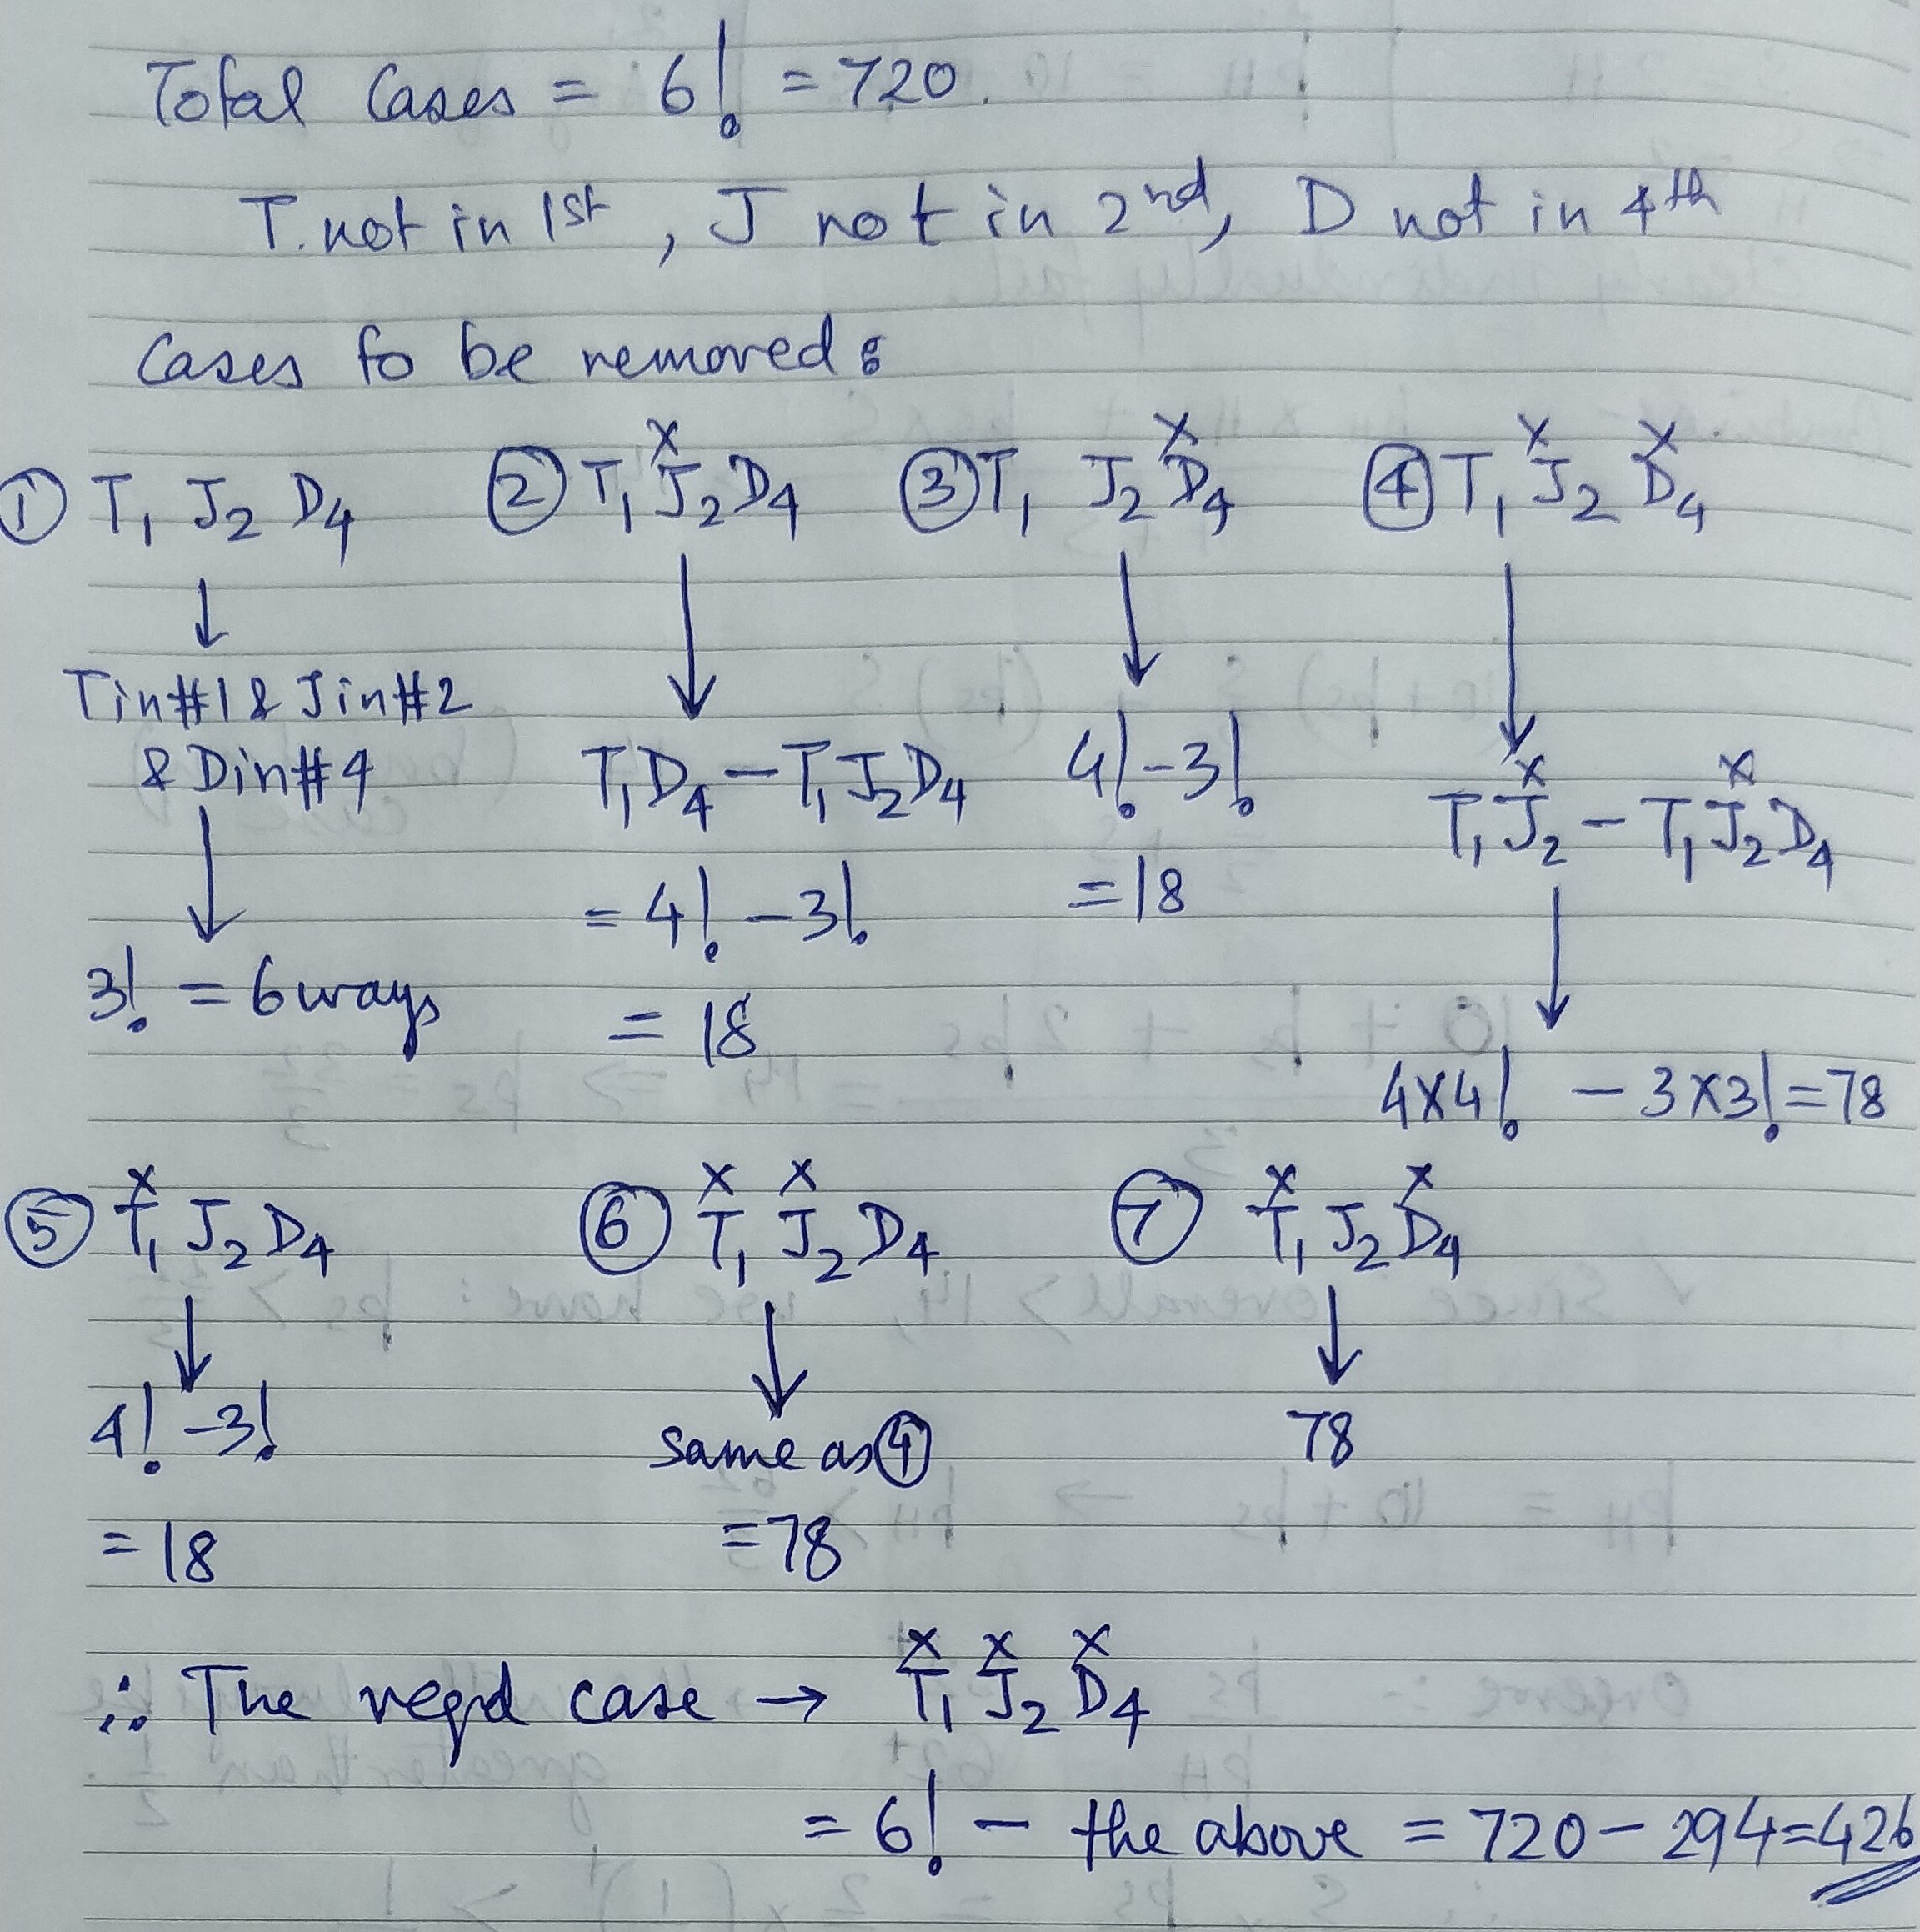 Total Cases = 6! = 720.
T. not in 1st, J not in 2nd, D not in 4th
Cases to be removed:
① T₁ J₂ D₄ ② T₁ J̽₂ D₄ ③ T₁ J₂ D̽₄ ④ T₁ J̽₂ D̽₄
↓ ↓ ↓ ↓
T in #1 & J in #2
& D in #4 T₁D₄ - T₁J₂D₄ 4! - 3! T₁J̽₂ - T₁J̽₂D₄
↓ = 4! - 3! = 18 ↓
3! = 6 ways = 18 4x4! - 3x3! = 78
⑤ T̽₁ J₂ D₄ ⑥ T̽₁ J̽₂ D₄ ⑦ T̽₁ J₂ D̽₄
↓ ↓ ↓
4! - 3! same as ④ 78
= 18 = 78
∴ The reqd case → T̽₁ J̽₂ D̽₄
= 6! - the above = 720 - 294 = 426